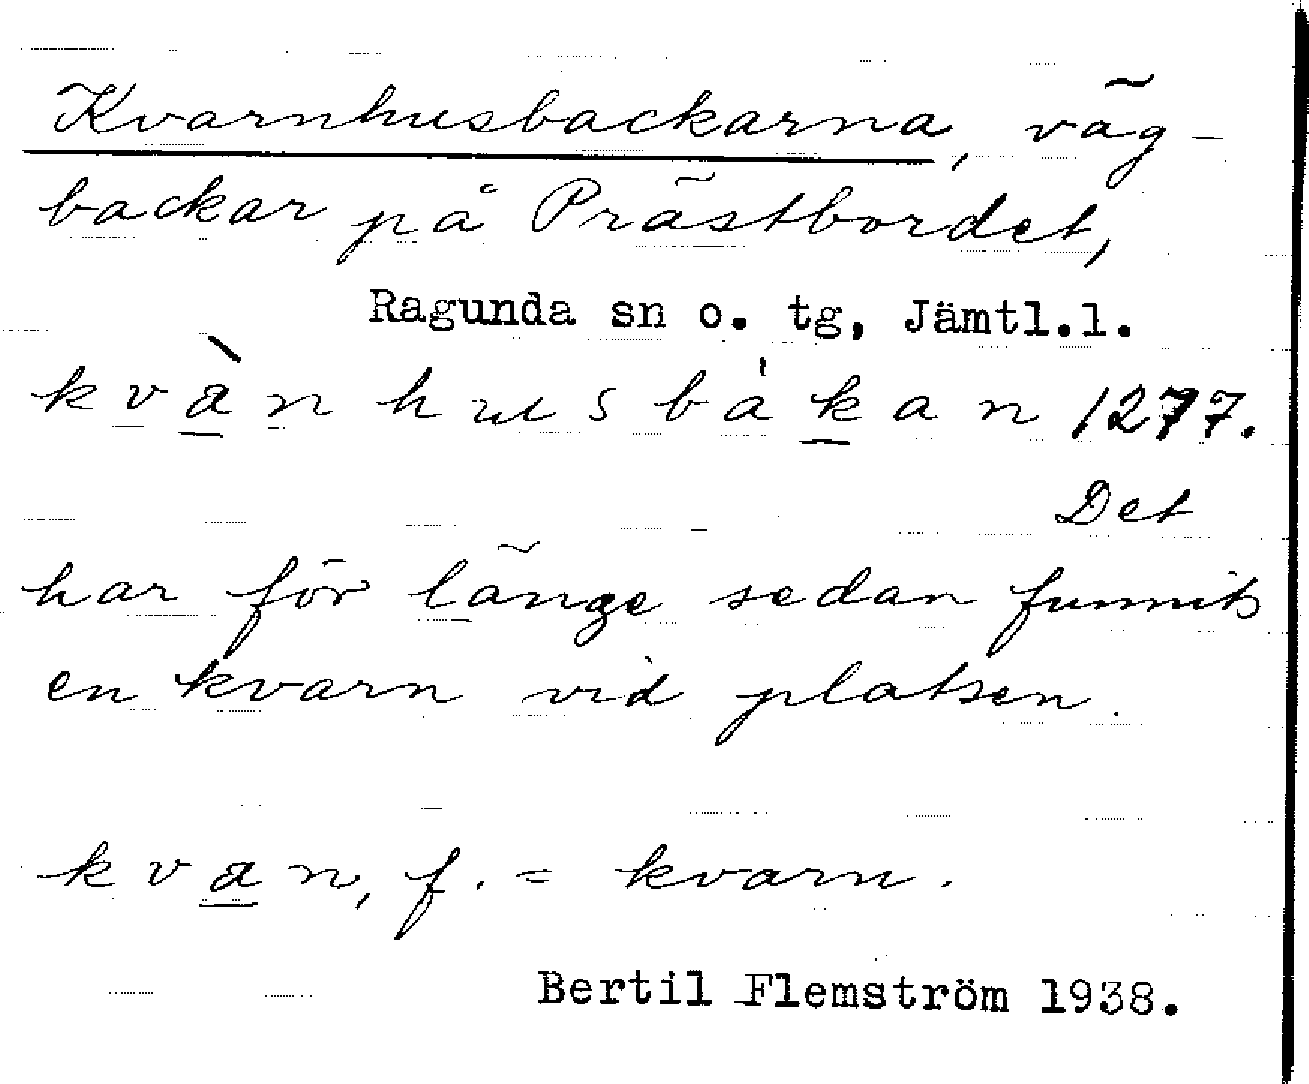 Kvarnhusbackarna, väg-
backar på Prästbordet,
Ragunda sn o. tg, Jämtl.l.
kvànhusbákan 1277.
Det
har för länge sedan funnits
en kvarn vid platsen.
kvan, f. = kvarn.
Bertil Flemström 1938.